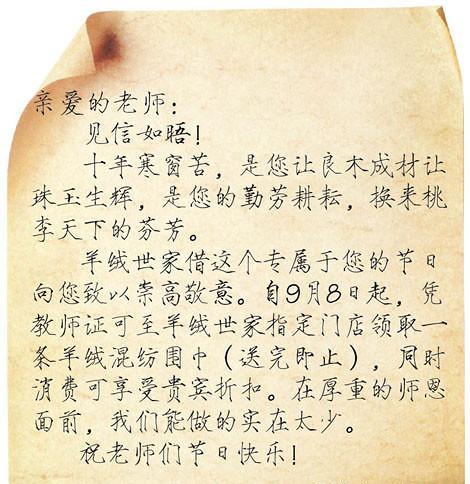 亲爱的老师：
见信如晤！
十年寒窗苦，是您让良木成材让
珠玉生辉，是您的勤劳耕耘，换来桃
李天下的芬芳。
羊绒世家借这个专属于您的节日
向您致以崇高敬意。自9月8日起，凭
教师证可至羊绒世家指定门店领取一
条羊绒混纺围巾（送完即止），同时
消费可享受贵宾折扣。在厚重的师恩
面前，我们能做的实在太少。
祝老师们节日快乐！